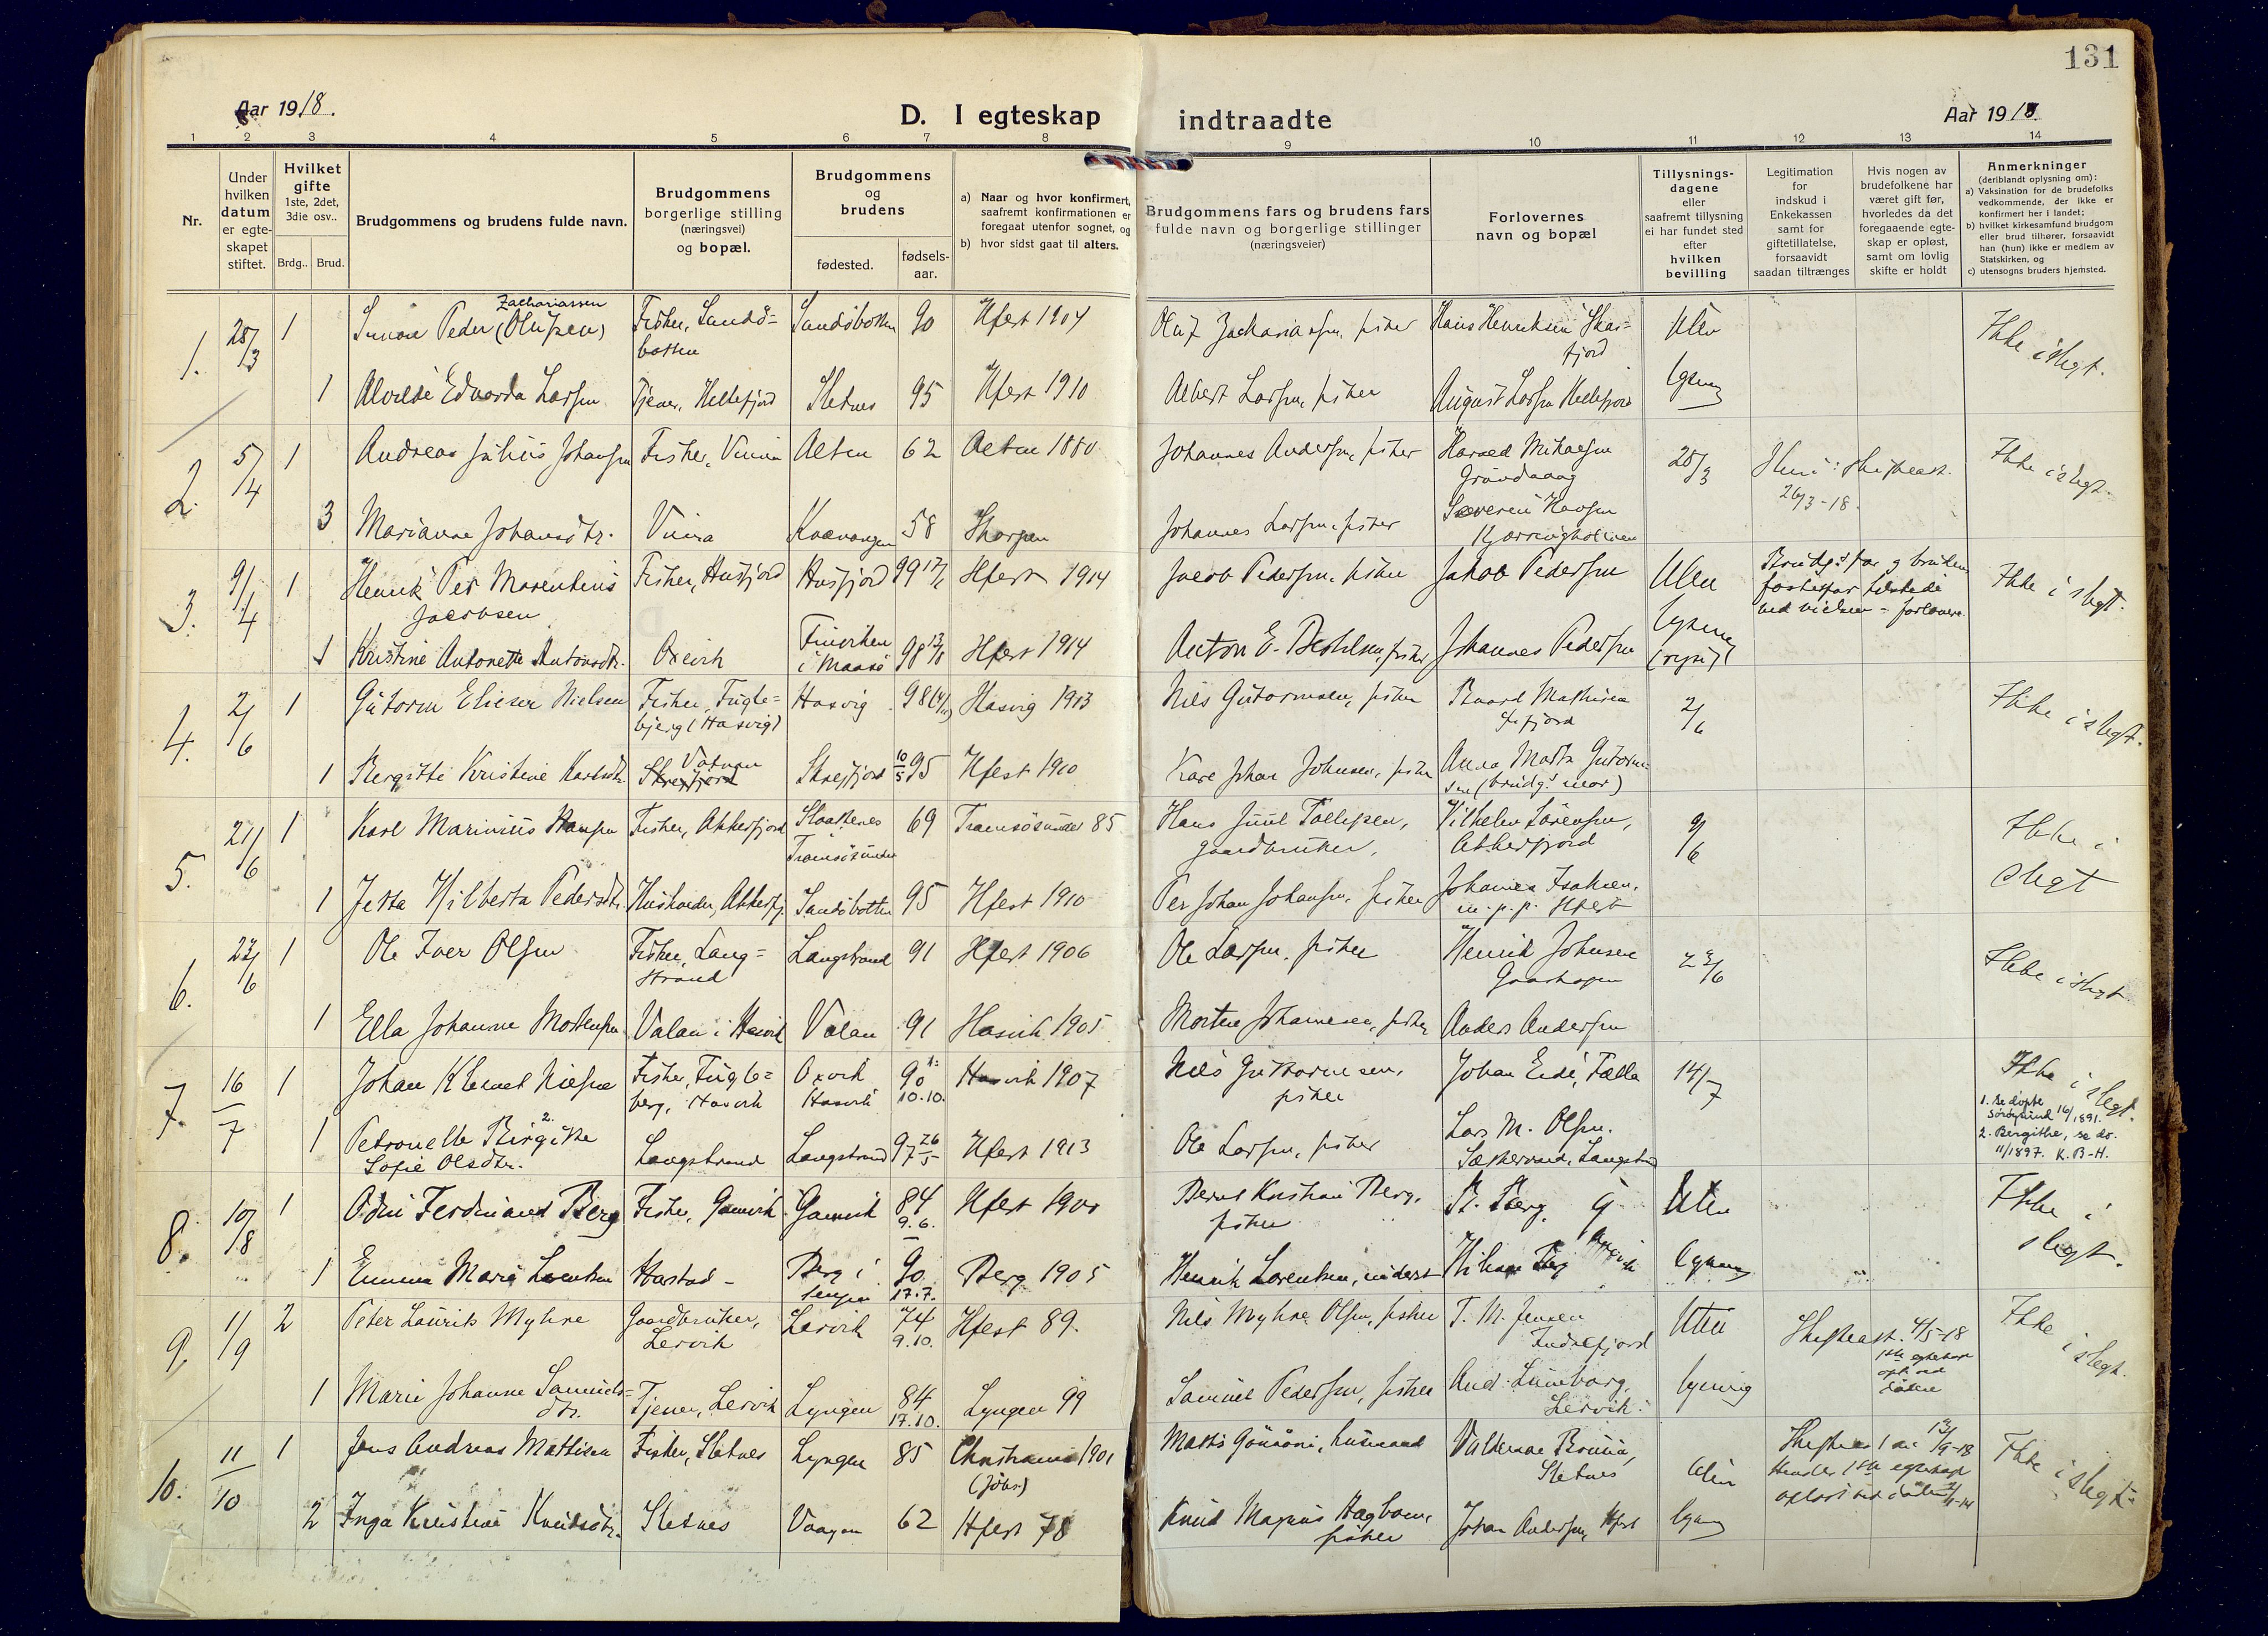 131
Aar 1918.
D. I egteskap
indtraadte
Aar 1918.
1 2 3 4 5 6 7 8 9 10 11 12 13 14
Nr.
Under
hvilken
datum
er egte-
skapet
stiftet.
Hvilket
gifte
1ste, 2det,
3die osv..
Brdg.. Brud.
Brudgommens og brudens fulde navn.
Brudgommens
borgerlige stilling
(næringsvei)
og bopæl.
Brudgommens
og
brudens
fødested.
fødsels-
aar.
a) Naar og hvor konfirmert,
saafremt konfirmationen er
foregaat utenfor sognet, og
b) hvor sidst gaat til alters.
Brudgommens fars og brudens fars
fulde navn og borgerlige stillinger
(næringsveier)
Forlovernes
navn og bopæl
Tillysnings-
dagene
eller
saafremt tillysning
ei har fundet sted
efter
hvilken
bevilling
Legitimation
for
indskud i
Enkekassen
samt for
giftetillatelse,
forsaavidt
saadan tiltrænges
Hvis nogen av
brudefolkene har
været gift før,
hvorledes da det
foregaaende egte-
skap er opløst,
samt om lovlig
skifte er holdt
Anmerkninger
(deriblandt oplysning om):
a) Vaksination for de brudefolks
vedkommende, der ikke er
konfirmert her i landet;
b) hvilket kirkesamfund brudgom
eller brud tilhører, forsaavidt
han (hun) ikke er medlem av
Statskirken, og
c) utensogns bruders hjemsted.
Zachariassen
1. 28/3 1 Peder (Olufsen) Fisker, Sandø- Sandøbotten 90 Hfest 1904 Oluf Zachariassen, fisker Hans Henriksen Skar- Uten Ikke i slegt.
botten fjord
1 Alvilde Edvarda Larsen Tjener, Hellefjord Sletnes 95 Hfest 1910 Albert Larsen, fisker August Larsen Hellefjord lysning
2. 5/4 1 Andreas Julius Johansen Fisker, Vinna Alten 62 Alten 1880 Johannes Andersen, fisker Harald Mikalsen 28/3 Skifteatt. Ikke i slegt.
26/3-18.
3 Marianne Johansdtr. Vinna Kvænangen 58 Johannes Larsen, fisker Severin Hansen
Kjerringholmen
3. 9/4 1 Henrik Per Marentius Fisker, Husfjord Husfjord 99 Hfest 1914 Jacob Pedersen, fisker Jakob Pedersen Uten Brudg.s far og brudens Ikke i slegt.
Jacobsen fosterfar tilstede
ved vielsen = forlovere.
1 Kristine Antonette Antonsdtr. Oxevik Finviken 98 Hfest 1914 Anton E. fisker Johannes Pedersen lysning
i Maasø
4. 2/6 1 Gutorm Elieser Nielsen Fisker, Fugle- Hasvig 98 Hasvig 1913 Nils Gutormsen, fisker Baard Mathisen 2/6 Ikke i slegt.
bjerg (Hasvig)
Vatnan
1 Bergitte Kristine Karlsdtr. Skreifjord Skreifjord 10/5 95 Hfest 1910 Karl Johan Johnsen, fisker Anna Marta Gutorm-
sen (brudg.s mor)
5. 21/6 1 Karl Marinius Hansen Fisker, Akkarfjord 69 Tromsøsundet 85 Hans Juul Tollefsen, Vilhelm Sørensen, 9/6 Ikke i
Tromsøsundet gaardbruker, Akkarfjord slegt
1 Jetta Hilberta Pedersdtr. Husholder, Akkarfj. Sandøbotten 95 Hfest 1910 Per Johan Johansen, fisker Johannes Isaksen,
m. p. p. Hfest
6. 23/6 1 Ole Iver Olsen Fisker, Lang- Langstrand 91 Hfest 1906 Ole Larsen, fisker Henrik Johnsen 23/6 Ikke i slegt.
strand Gaashopen
1 Ella Johanne Mortensen Valan i Hasvik Valan 91 Hasvik 1905 Morten Johannesen, fisker Anders Andersen
7. 16/7 1 Johan Klemet Nielsen Fisker, Fugle- Oxvik 90 1. Hasvik 1907 Nils Guttormsen, Johan Eide, Fella 14/7 Ikke i slegt.
berg, Hasvik Hasvik 10.10. fisker
1. se døpte
Sørøysund 16/1891.
2. Bergithe, se do.
11/1897. K. B-H.
1 Petronelle Birgitte 2. Langstrand Langstrand 97 26/5 Hfest 1913 Ole Larsen, fisker Lars M. Olsen.
Sofie Olsdtr. Langstrand
8. 10/8 1 Odin Ferdinand Berg Fisker, Gamvik Gamvik 84 Hfest 1900 Bernt Kristian Berg, B. Berg. G Uten Ikke i
9.6. fisker slegt.
1 Emma Marie Lorentsen Harstad - Berg i 90 Berg 1905 Henrik Lorentsen, inderst lysning
Senjen 17.7.
9. 11/9 2 Peter Laurits Myhre Gaardbruker, Lervik 74 Hfest 89. Nils Myhre Olsen, fisker T. M. Jensen Uten Skifteatt. 4/5-18 Ikke i slegt.
Lervik 9.10. Indrefjord 1ste egteskap
opl. ved
døden
1 Marie Johanne Samuels- Tjener, Lervik Lyngen 84 Lyngen 99 Samuel Pedersen, fisker And. Luneborg, lysning
dtr. 17.10. Lervik.
10. 11/10 1 Jens Andreas Mathisen Fisker, Sletnes Lyngen 85 Christiania 1901 husmand Valdemar Bruun, Uten Skifteatt. av 13/9-18 Ikke i slegt.
(Jobs.) Sletnes Hendes 1ste egteskap
opløst ved døden
2 Inga Kristine Knudsdtr. Sletnes Vaagan 62 Hfest 78 Knud Magnus Hagbom, Johan Andersen, Hfest lysning
fisker